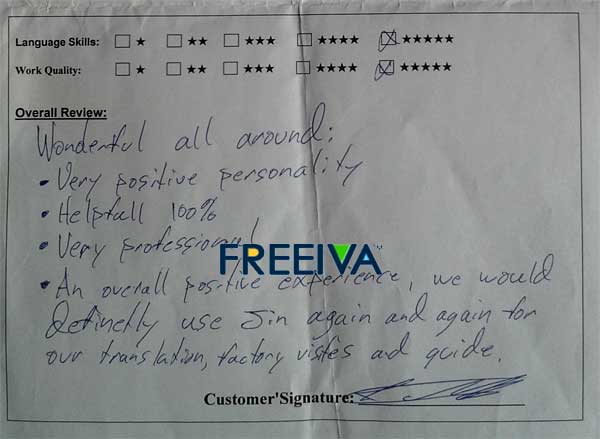 Language Skills: ☐ ★ ☐ ★★ ☐ ★★★ ☐ ★★★★ ☒ ★★★★★
Work Quality: ☐ ★ ☐ ★★ ☐ ★★★ ☐ ★★★★ ☑ ★★★★★
Overall Review:
Wonderful all around:
• Very positive personality
• Helpfull 100%
• Very professional
FREEIVA
• An overall positive experience, we would
definetly use Jin again and again for
our translation, factory visites ad guide.
Customer'Signature: